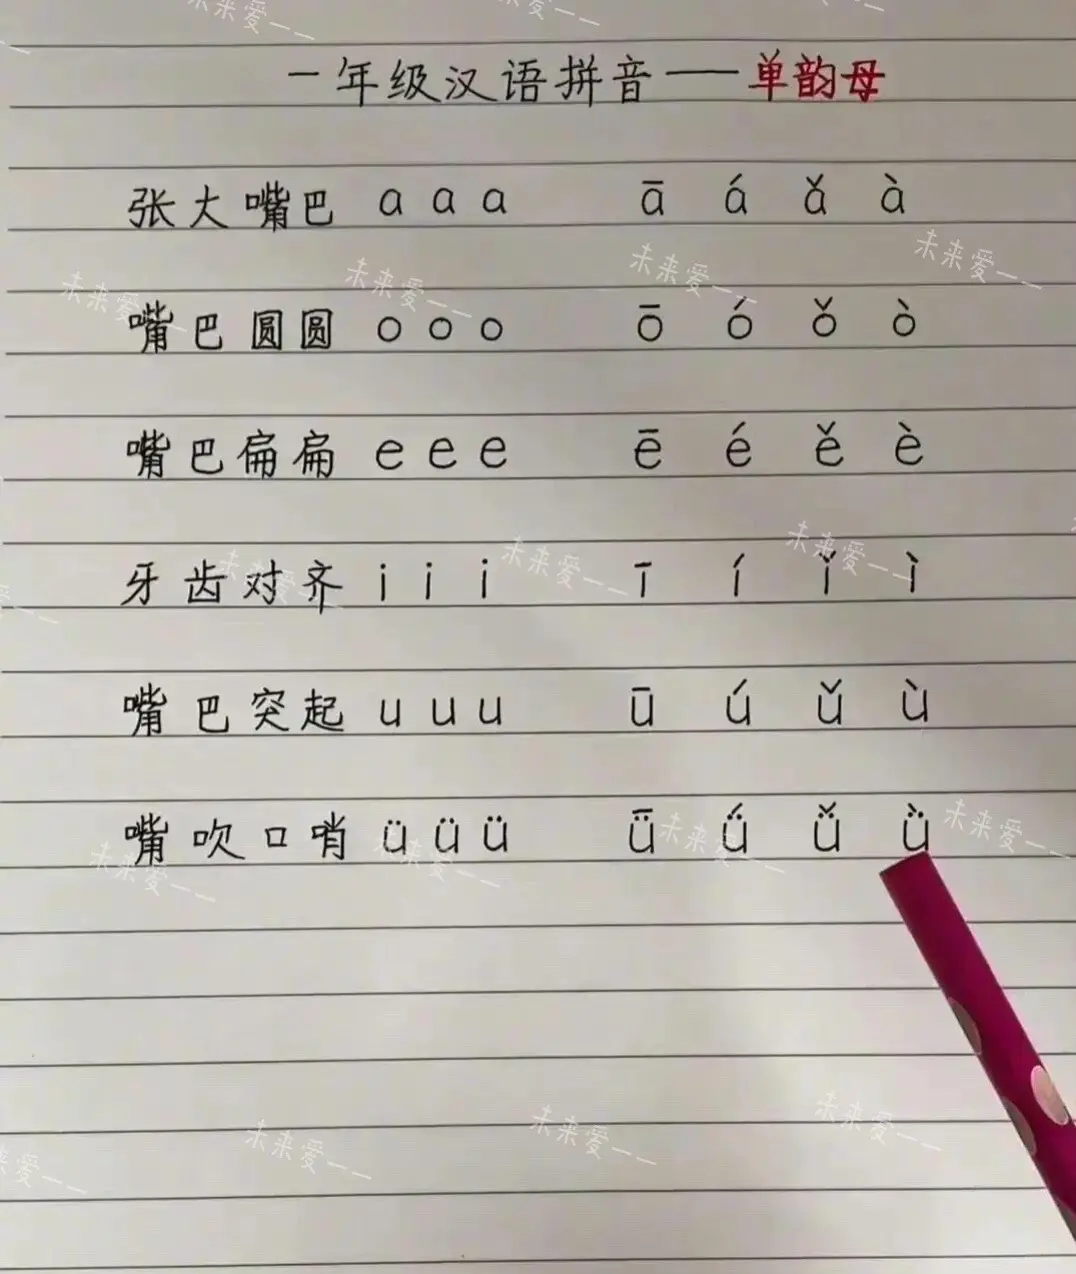 一年级汉语拼音——单韵母
张大嘴巴 a a a ā á ǎ à
嘴巴圆圆 o o o ō ó ǒ ò
嘴巴扁扁 e e e ē é ě è
牙齿对齐 i i i ī í ǐ ì
嘴巴突起 u u u ū ú ǔ ù
嘴吹口哨 ü ü ü ǖ ǘ ǚ ǜ
未来爱一一